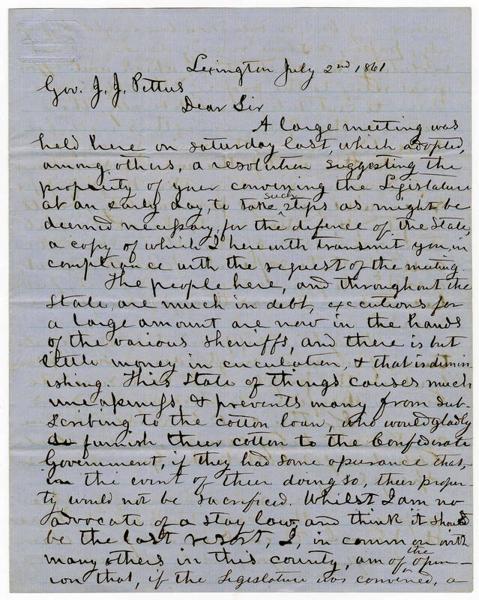 Lexington July 2nd 1861
Gov. J. J. Pettus
Dear Sir
A large meeting was
held here on saturday last, which adopted,
among others, a resolution suggesting the
propriety of your convening the Legislature
at an early day, to take such steps as might be
deemed necessary, for the defence of the State,
a copy of which I here with transmit you, in
compliance with the request of the meeting.
The people here, and throughout the
State, are much in debt, executions for
a large amount are now in the hands
of the various Sheriffs, and there is but
little money in circulation, & that is dimin
ishing. This state of things causes much
uneasiness, & prevents many from sub-
scribing to the cotton loan, who would gladly
furnish their cotton to the Confederate
Government, if they had some assurance that,
in the event of their doing so, their proper
ty would not be sacrificed. Whilst I am no
advocate of a stay law, and think it should
be the last resort, I, in common with
many others in this county, am of the opin-
ion that, if the Legislature was convened, a